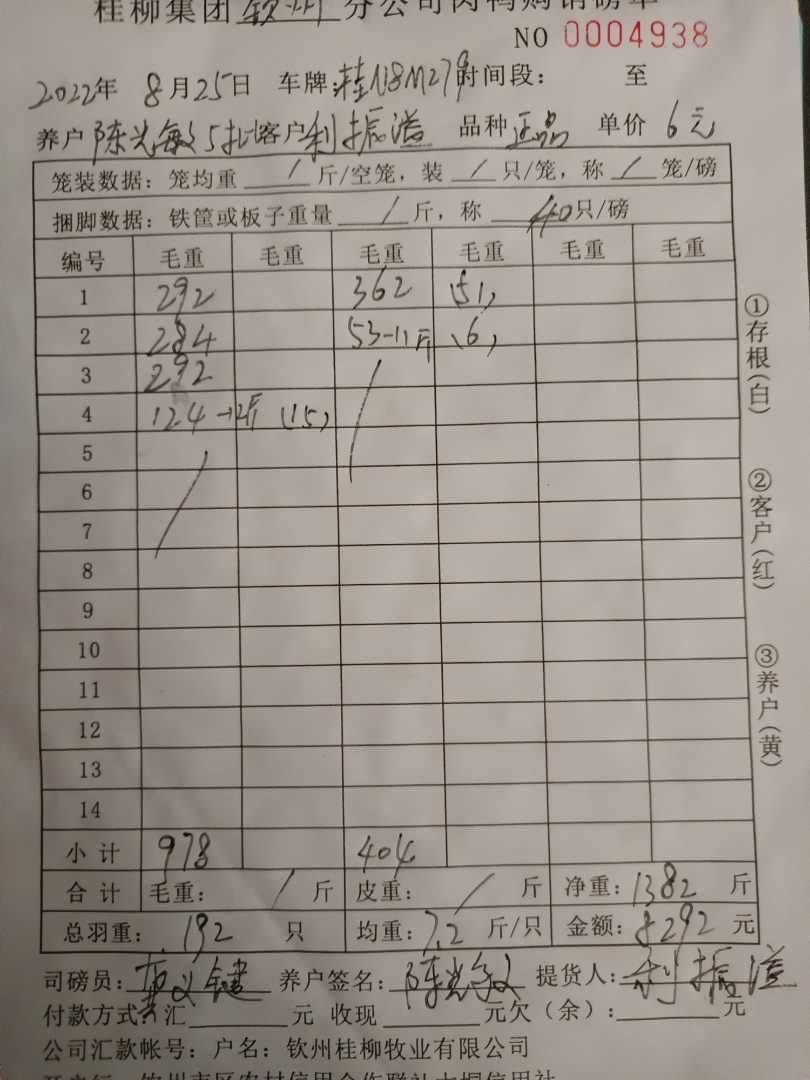 桂柳集团 钦州 分公司肉鸭购销磅单
NO 0004938
2022年 8月25日 车牌:桂N8M279 时间段: 至
养户 陈光敏5批 客户 利振溢 品种 正品 单价 6元
笼装数据: 笼均重 / 斤/空笼, 装 / 只/笼, 称 / 笼/磅
捆脚数据: 铁筐或板子重量 / 斤, 称 40只/磅
编号 毛重 毛重 毛重 毛重 毛重 毛重
1 292 362 (51)
2 284 53-11斤 (6)
3 292
4 124-12斤 (15)
5
6
7
8
9
10
11
12
13
14
小计 978 404
合计 毛重: / 斤 皮重: / 斤 净重: 1382 斤
总羽重: 192 只 均重: 7.2 斤/只 金额: 8292 元
司磅员: 养户签名: 陈光敏 提货人: 利振溢
付款方式: 汇 元 收现 元欠(余): 元
公司汇款帐号: 户名: 钦州桂柳牧业有限公司
①存根(白)
②客户(红)
③养户(黄)